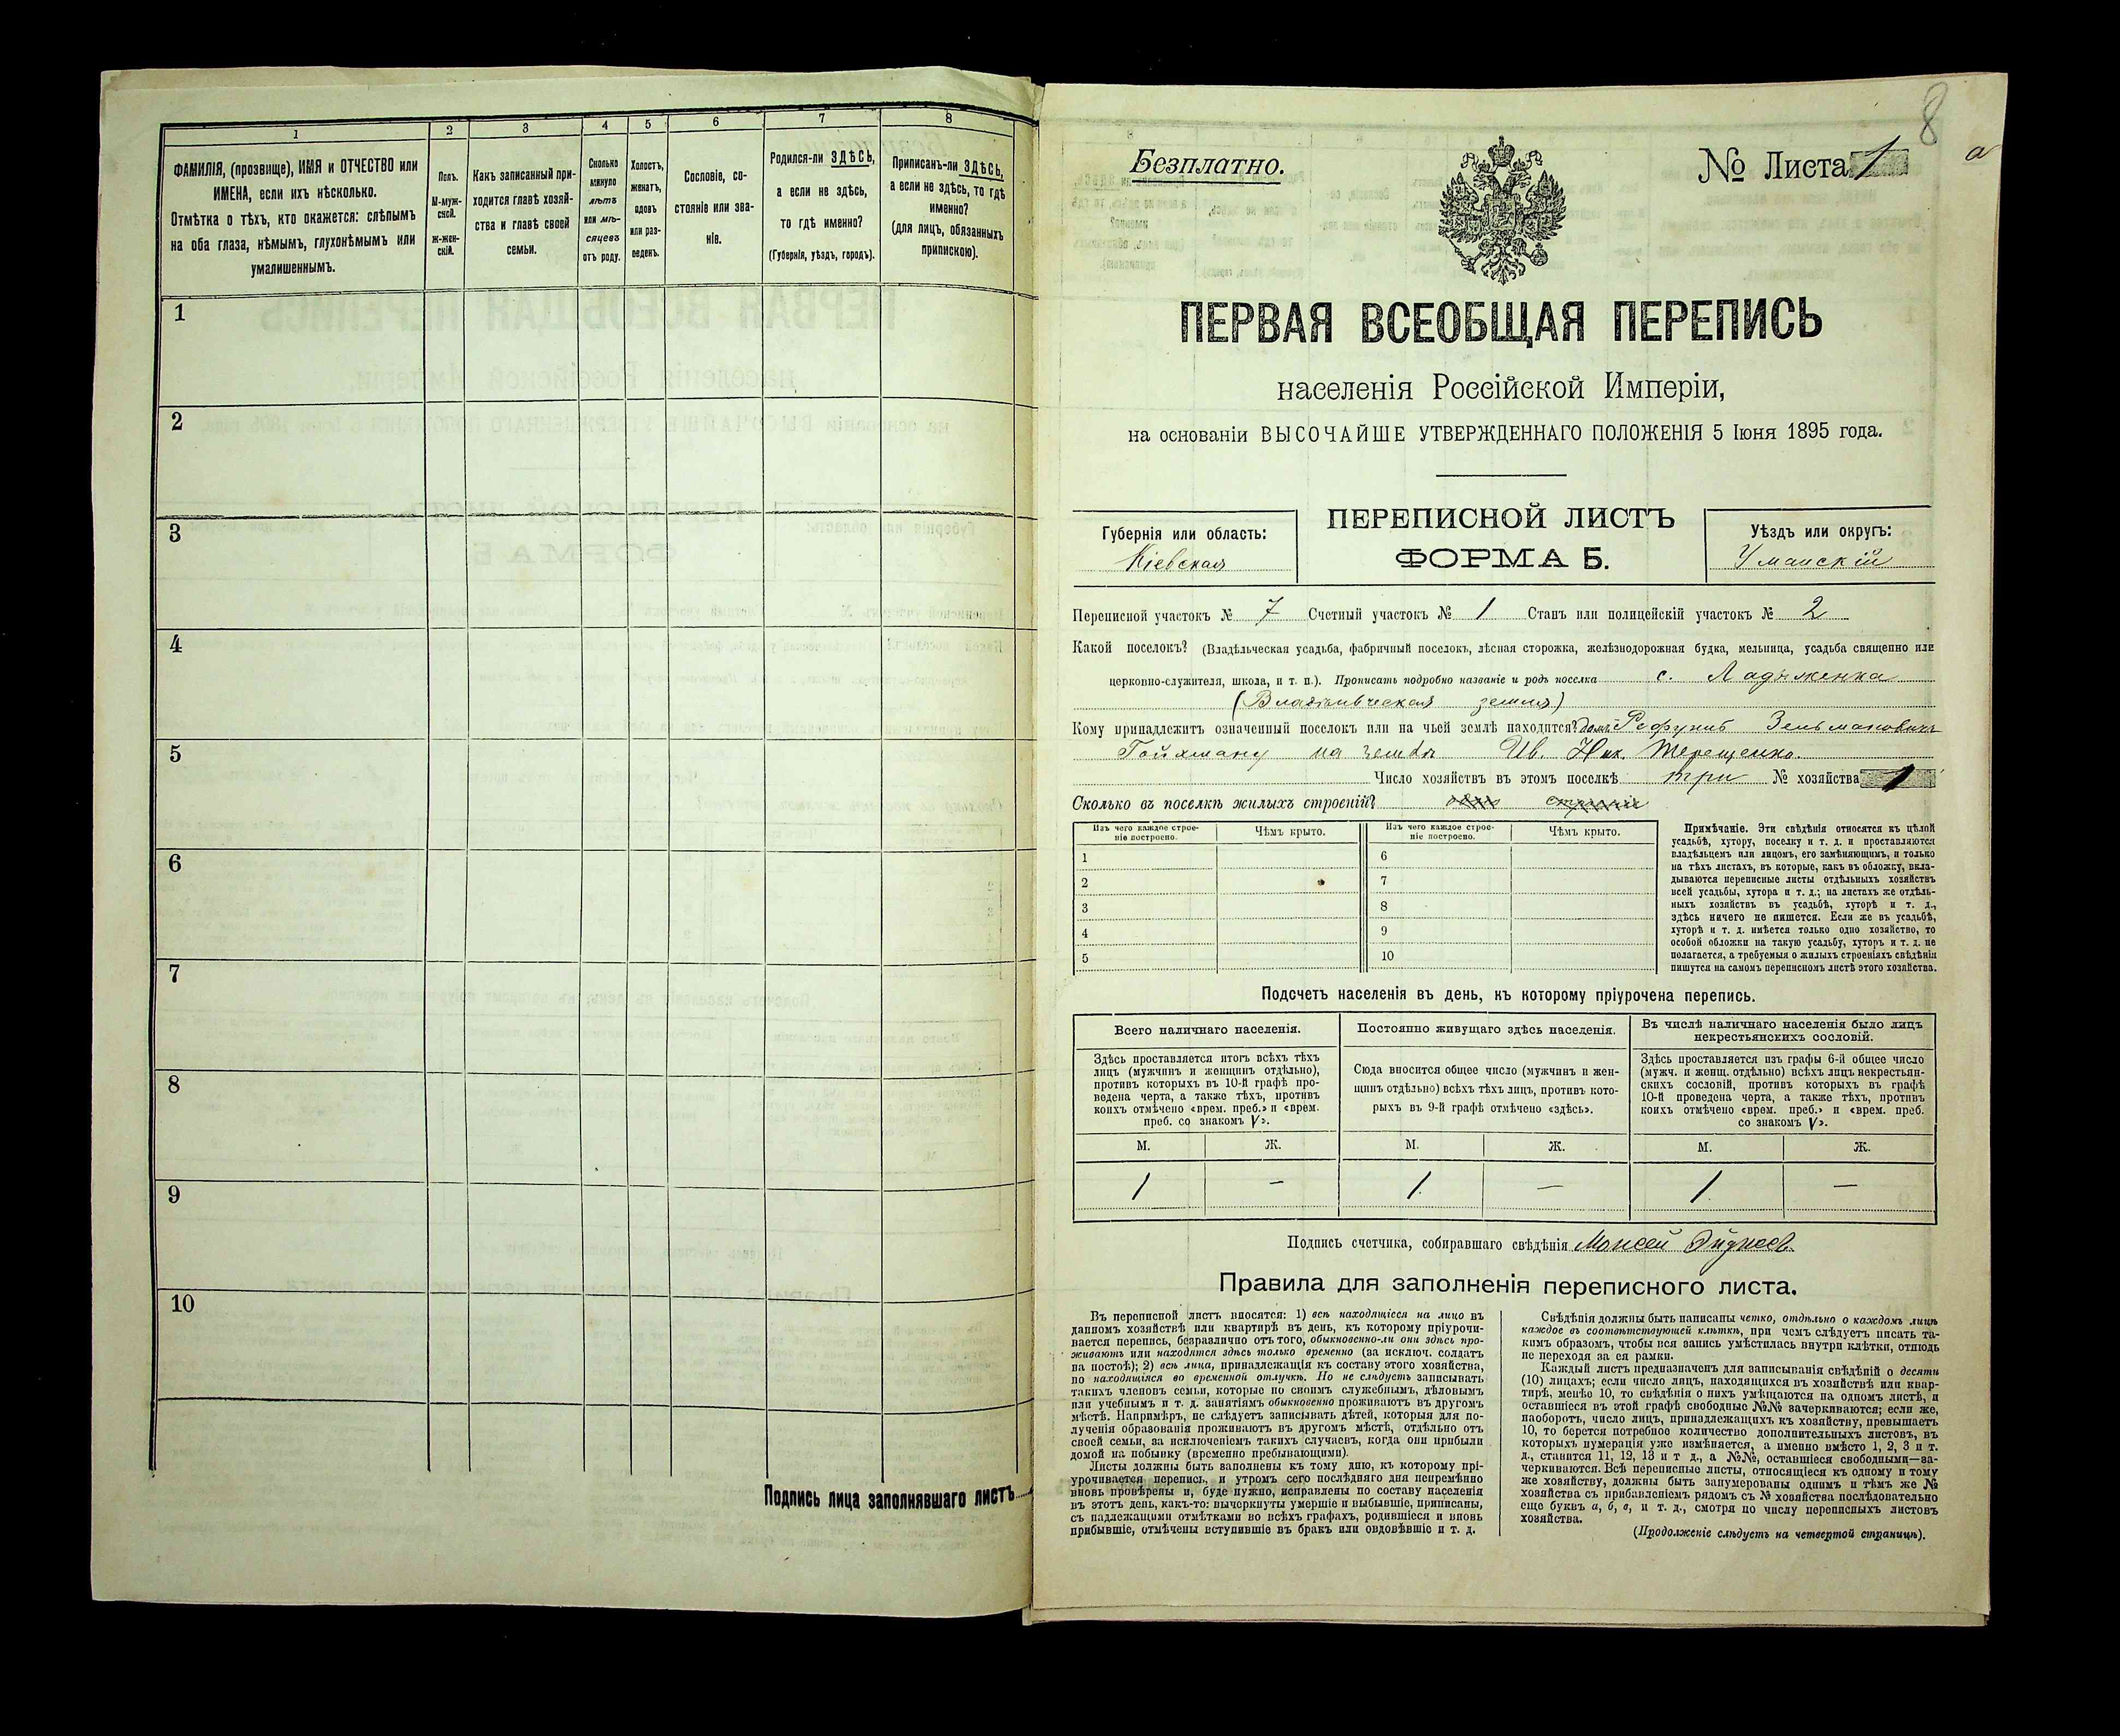 1
2
3
4
5
6
7
8
ФАМИЛІЯ, (прозвище), ИМЯ и ОТЧЕСТВО или
ИМЕНА, если ихъ нѣсколько.
Отмѣтка о тѣхъ, кто окажется: слѣпымъ
на оба глаза, нѣмымъ, глухонѣмымъ или
умалишеннымъ.
Полъ.
М-муж-
ской.
Ж-жен-
скій.
Какъ записанный при-
ходится главѣ хозяй-
ства и главѣ своей
семьи.
Сколько
минуло
лѣтъ
или мѣ-
сяцевъ
отъ роду.
Холостъ,
женатъ,
вдовъ
или раз-
веденъ.
Сословіе, со-
стояніе или зва-
ніе.
Родился-ли ЗДѢСЬ,
а если не здѣсь,
то гдѣ именно?
(Губернія, уѣздъ, городъ).
Приписанъ-ли ЗДѢСЬ,
а если не здѣсь, то гдѣ
именно?
(для лицъ, обязанныхъ
припискою).
1
2
3
4
5
6
7
8
9
10
Подпись лица заполнявшаго листъ
8
а
Безплатно.
№ Листа 1
ПЕРВАЯ ВСЕОБЩАЯ ПЕРЕПИСЬ
населенія Россійской Имперіи,
на основаніи ВЫСОЧАЙШЕ УТВЕРЖДЕННАГО ПОЛОЖЕНІЯ 5 Іюня 1895 года.
Губернія или область:
Кіевская
ПЕРЕПИСНОЙ ЛИСТЪ
ФОРМА Б.
Уѣздъ или округъ:
Уманскій
Переписной участокъ № 7 Счетный участокъ № 1 Станъ или полицейскій участокъ № 2
Какой поселокъ? (Владѣльческая усадьба, фабричный поселокъ, лѣсная сторожка, желѣзнодорожная будка, мельница, усадьба священно или
церковно-служителя, школа, и т. п.). Прописать подробно названіе и родъ поселка с. Ладыженка
(Владѣльческая земля)
Кому принадлежитъ означенный поселокъ или на чьей землѣ находится? Зельмановичъ
Гойхману на землѣ Ив. Ник. Терещенко.
Число хозяйствъ въ этомъ поселкѣ три № хозяйства 1
Сколько въ поселкѣ жилыхъ строеній? одно строеніе
Изъ чего каждое строе-
ніе построено.
Чѣмъ крыто.
Изъ чего каждое строе-
ніе построено.
Чѣмъ крыто.
1
2
3
4
5
6
7
8
9
10
Примѣчаніе. Эти свѣдѣнія относятся къ цѣлой
усадьбѣ, хутору, поселку и т. д. и проставляются
владѣльцемъ или лицомъ, его замѣняющимъ, и только
на тѣхъ листахъ, въ которые, какъ въ обложку, вкла-
дываются переписные листы отдѣльныхъ хозяйствъ
всей усадьбы, хутора и т. д.; на листахъ же отдѣль-
ныхъ хозяйствъ въ усадьбѣ, хуторѣ и т. д.,
здѣсь ничего не пишется. Если же въ усадьбѣ,
хуторѣ и т. д. имѣется только одно хозяйство, то
особой обложки на такую усадьбу, хуторъ и т. д. не
полагается, а требуемыя о жилыхъ строеніяхъ свѣдѣнія
пишутся на самомъ переписномъ листѣ этого хозяйства.
Подсчетъ населенія въ день, къ которому пріурочена перепись.
Всего наличнаго населенія.
Здѣсь проставляется итогъ всѣхъ тѣхъ
лицъ (мужчинъ и женщинъ отдѣльно),
противъ которыхъ въ 10-й графѣ про-
ведена черта, а также тѣхъ, противъ
коихъ отмѣчено «врем. преб.» и «врем.
преб. со знакомъ V».
Постоянно живущаго здѣсь населенія.
Сюда вносится общее число (мужчинъ и жен-
щинъ отдѣльно) всѣхъ тѣхъ лицъ, противъ кото-
рыхъ въ 9-й графѣ отмѣчено «здѣсь».
Въ числѣ наличнаго населенія было лицъ
некрестьянскихъ сословій.
Здѣсь проставляется изъ графы 6-й общее число
(мужч. и женщ. отдѣльно) всѣхъ лицъ некрестьян-
скихъ сословій, противъ которыхъ въ графѣ
10-й проведена черта, а также тѣхъ, противъ
коихъ отмѣчено «врем. преб.» и «врем. преб.
со знакомъ V».
М. Ж. М. Ж. М. Ж.
1 — 1 — 1 —
Подпись счетчика, собиравшаго свѣдѣнія Моисей
Правила для заполненія переписного листа.
Въ переписной листъ вносятся: 1) всѣ находящіеся на лицо въ
данномъ хозяйствѣ или квартирѣ въ день, къ которому пріурочи-
вается перепись, безразлично отъ того, обыкновенно-ли они здѣсь про-
живаютъ или находятся здѣсь только временно (за исключ. солдатъ
на постоѣ); 2) всѣ лица, принадлежащія къ составу этого хозяйства,
но находящіяся во временной отлучкѣ. Но не слѣдуетъ записывать
такихъ членовъ семьи, которые по своимъ служебнымъ, дѣловымъ
или учебнымъ и т. д. занятіямъ обыкновенно проживаютъ въ другомъ
мѣстѣ. Напримѣръ, не слѣдуетъ записывать дѣтей, которыя для по-
лученія образованія проживаютъ въ другомъ мѣстѣ, отдѣльно отъ
своей семьи, за исключеніемъ такихъ случаевъ, когда они прибыли
домой на побывку (временно пребывающими).
Листы должны быть заполнены къ тому дню, къ которому прі-
урочивается перепись, и утромъ сего послѣдняго дня непремѣнно
вновь провѣрены и, буде нужно, исправлены по составу населенія
въ этотъ день, какъ-то: вычеркнуты умершіе и выбывшіе, приписаны,
съ надлежащими отмѣтками во всѣхъ графахъ, родившіеся и вновь
прибывшіе, отмѣчены вступившіе въ бракъ или овдовѣвшіе и т. д.
Свѣдѣнія должны быть написаны четко, отдѣльно о каждомъ лицѣ
каждое въ соотвѣтствующей клѣткѣ, при чемъ слѣдуетъ писать та-
кимъ образомъ, чтобы вся запись умѣстилась внутри клѣтки, отнюдь
не переходя за ея рамки.
Каждый листъ предназначенъ для записыванія свѣдѣній о десяти
(10) лицахъ; если число лицъ, находящихся въ хозяйствѣ или квар-
тирѣ, менѣе 10, то свѣдѣнія о нихъ умѣщаются на одномъ листѣ, и
оставшіеся въ этой графѣ свободные №№ зачеркиваются; если же,
наоборотъ, число лицъ, принадлежащихъ къ хозяйству, превышаетъ
10, то берется потребное количество дополнительныхъ листовъ, въ
которыхъ нумерація уже измѣняется, а именно вмѣсто 1, 2, 3 и т.
д., ставится 11, 12, 13 и т д., а №№, оставшіеся свободными—за-
черкиваются. Всѣ переписные листы, относящіеся къ одному и тому
же хозяйству, должны быть занумерованы однимъ и тѣмъ же №
хозяйства съ прибавленіемъ рядомъ съ № хозяйства послѣдовательно
еще буквъ а, б, в, и т. д., смотря по числу переписныхъ листовъ
хозяйства.
(Продолженіе слѣдуетъ на четвертой страницѣ).